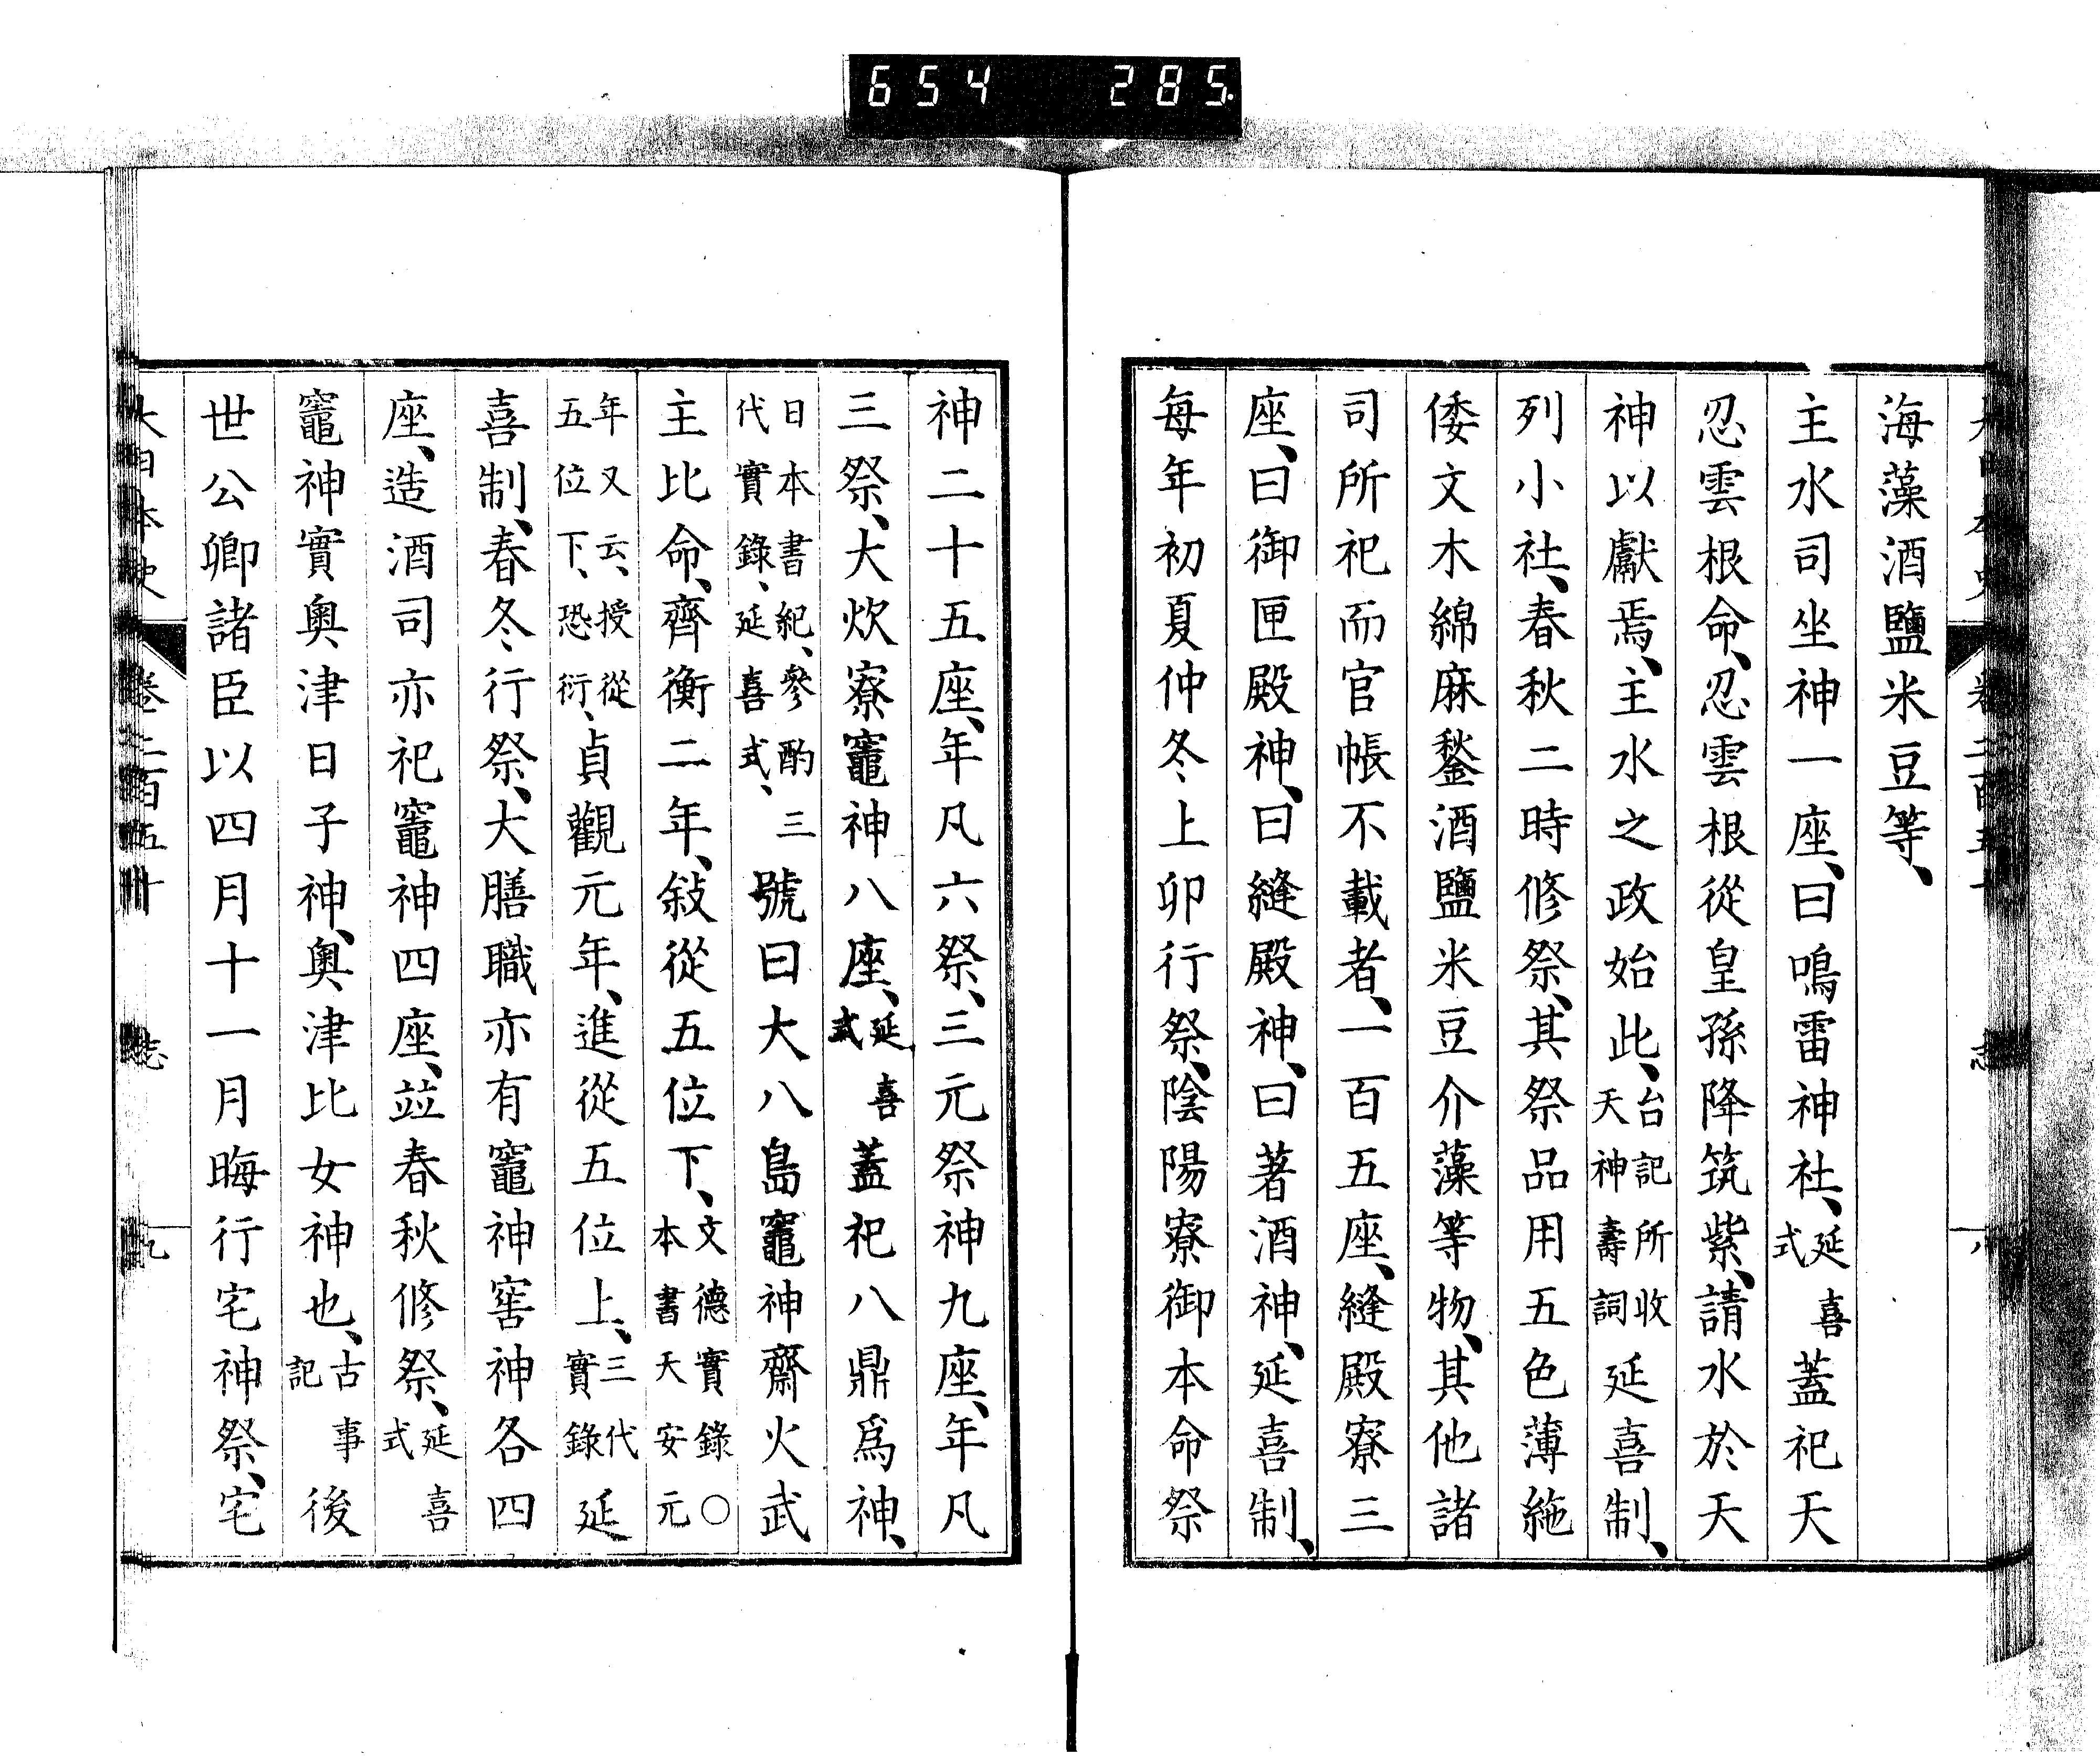 654 285
海藻酒鹽米豆等、
主水司坐神一座、曰鳴雷神社、延喜式蓋祀天
忍雲根命、忍雲根從皇孫降筑紫、請水於天
神以獻焉、主水之政始此、台記所收天神壽詞延喜制、
列小社、春秋二時修祭、其祭品用五色薄絁
倭文木綿麻鍫酒鹽米豆介藻等物、其他諸
司所祀而官帳不載者、一百五座、縫殿寮三
座、曰御匣殿神、曰縫殿神、曰著酒神、延喜制、
每年初夏仲冬上卯行祭、陰陽寮御本命祭
神二十五座、年凡六祭、三元祭神九座、年凡
三祭、大炊寮竈神八座、延喜式蓋祀八鼎爲神、
日本書紀、參酌三代實錄、延喜式、號曰大八島竈神齋火武
主比命、齊衡二年、敍從五位下、文德實錄○本書天安元
年又云、授從五位下、恐衍、貞觀元年、進從五位上、三代實錄延
喜制、春冬行祭、大膳職亦有竈神窖神各四
座、造酒司亦祀竈神四座、竝春秋修祭、延喜式
竈神實奧津日子神、奧津比女神也、古事記後
世公卿諸臣以四月十一月晦行宅神祭、宅
大日本史 卷二百五十 志 九